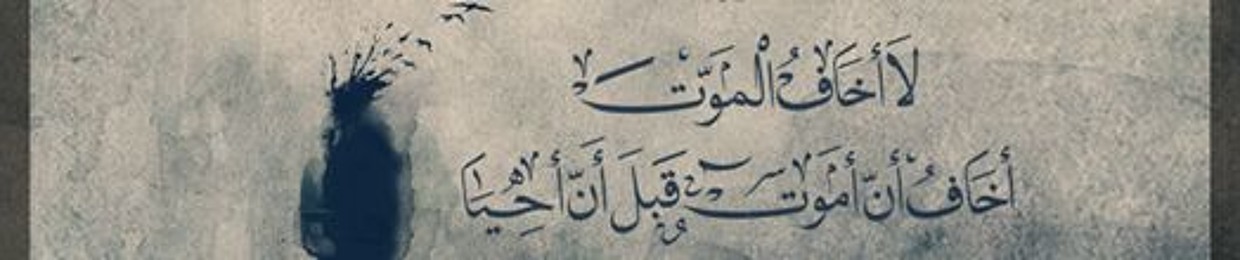 لَا أَخَافُ الْمَوْتَ
أَخَافُ أَنّ أَمَوتَ قَبلَ أَنّ أَحِيَا